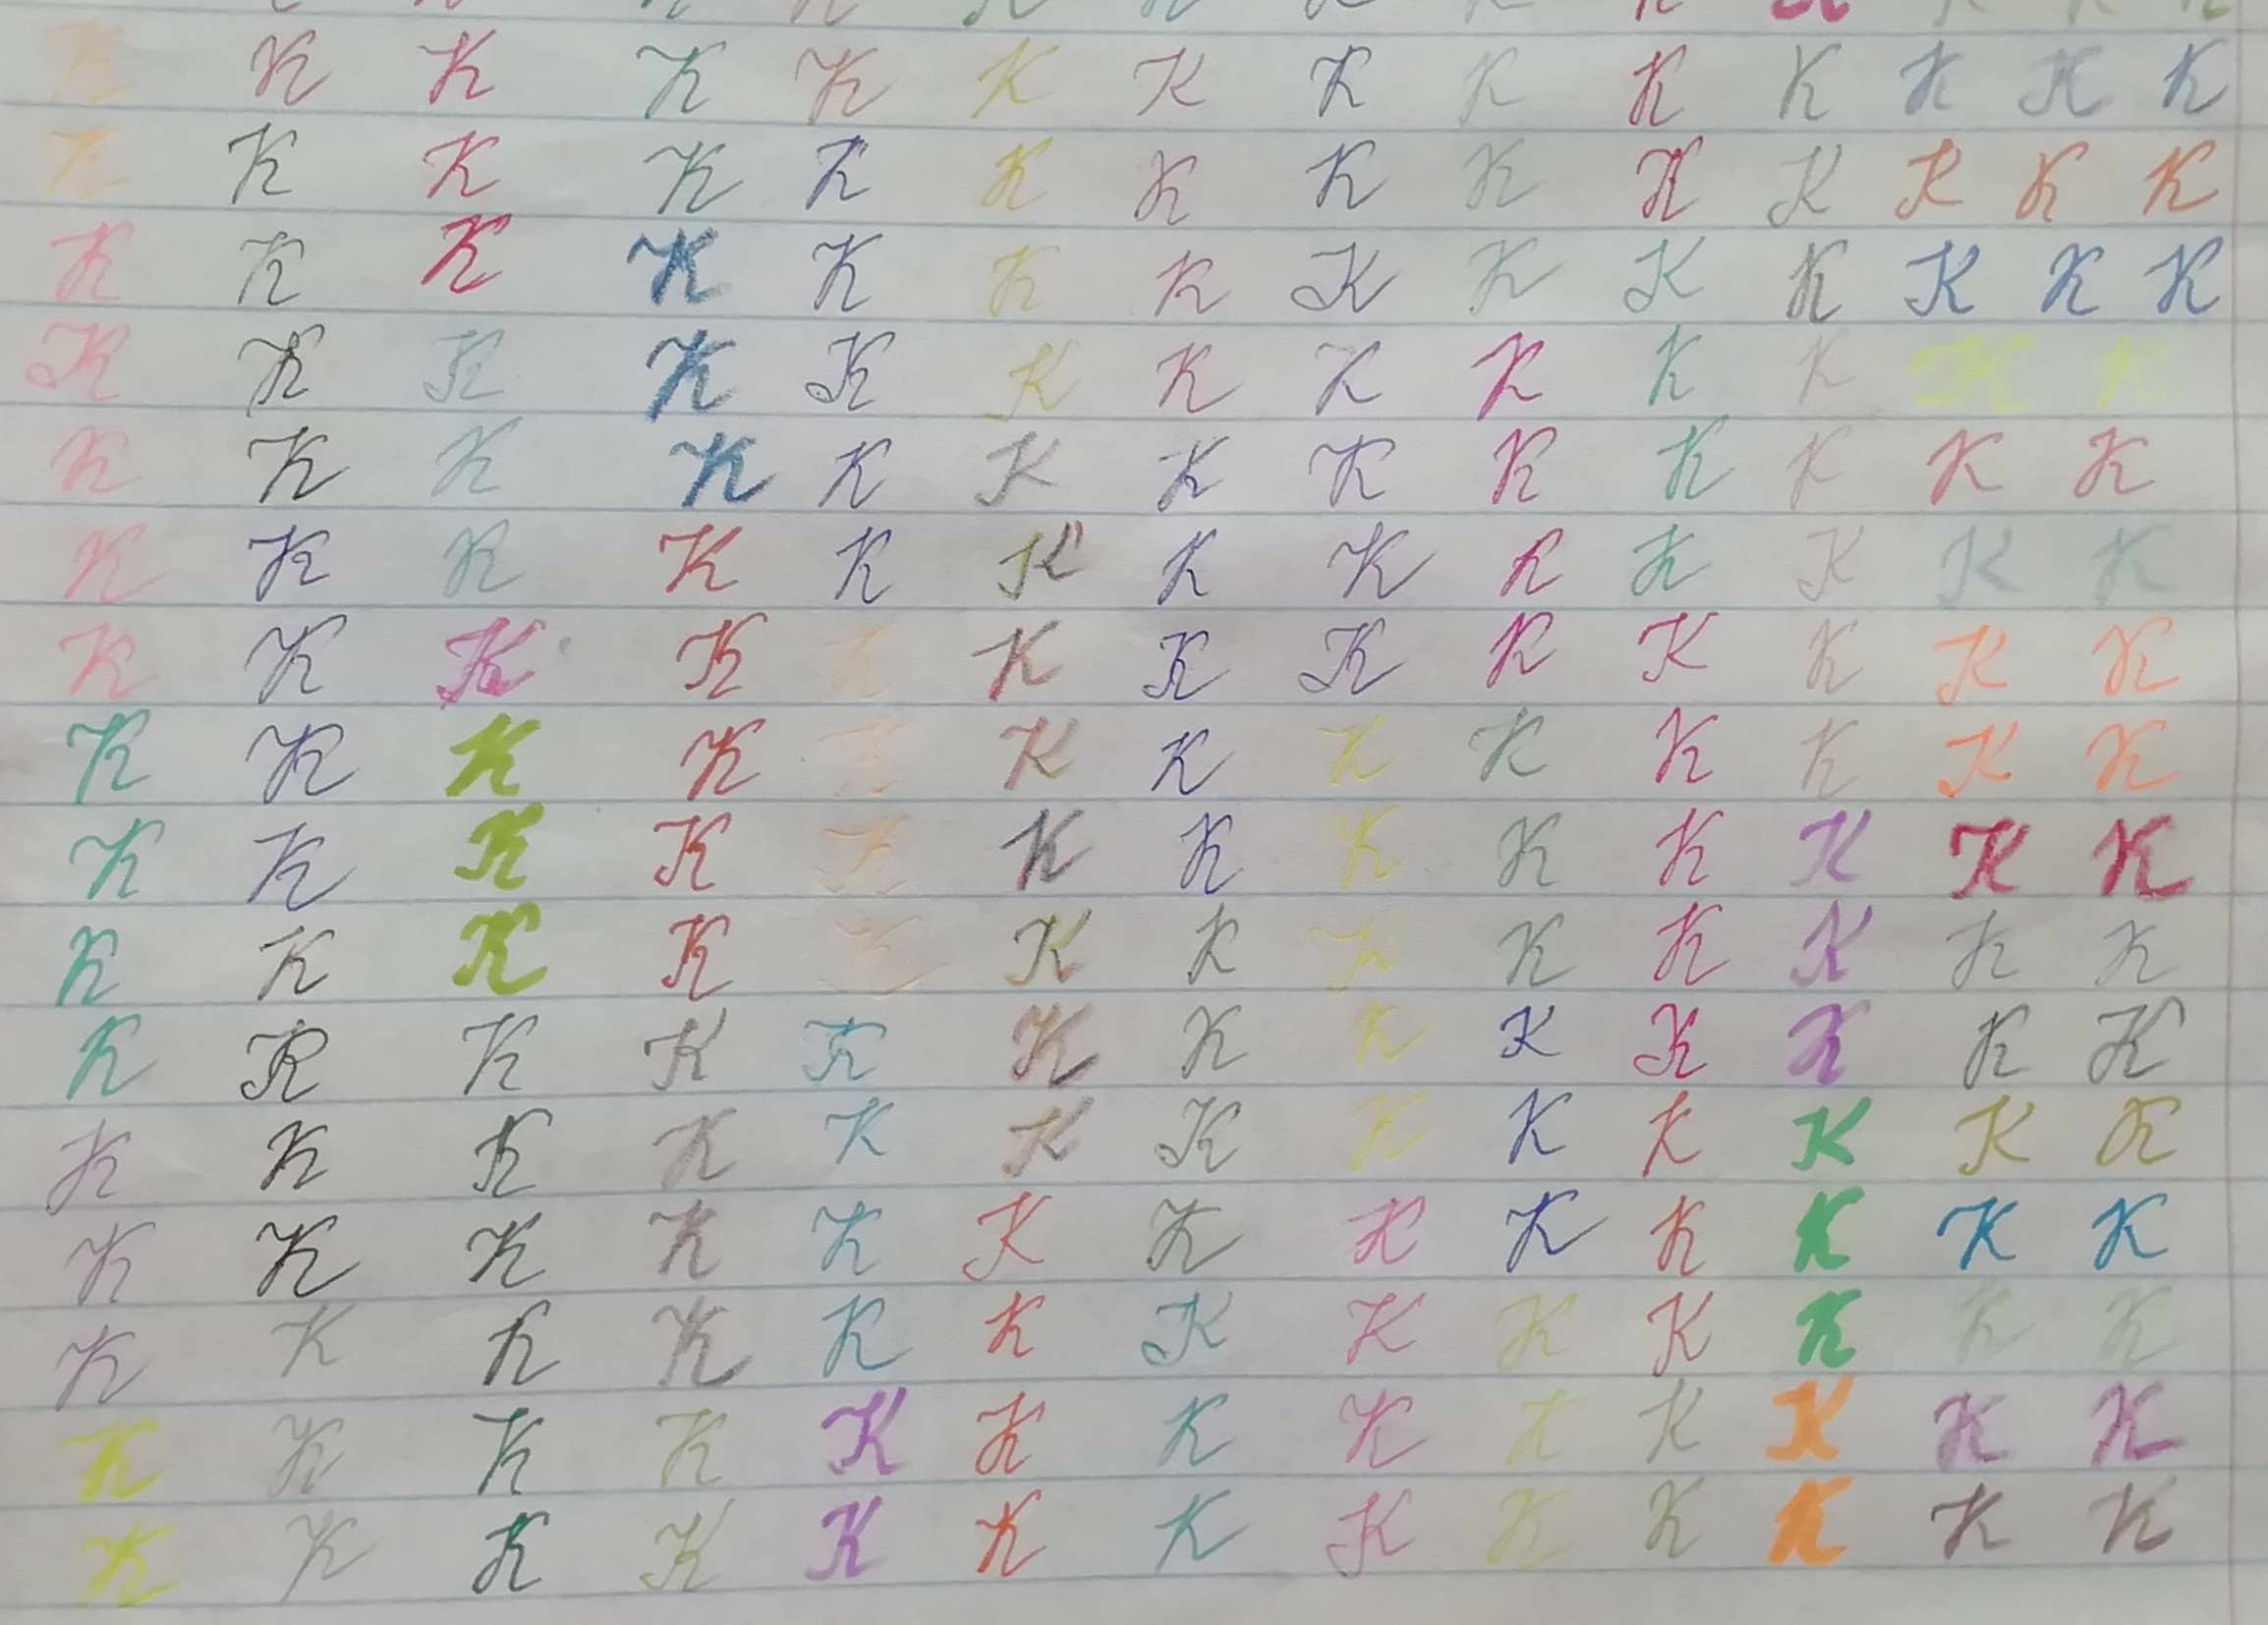 K K K K K K K K K K K K K K
K K K K K K K K K K K K K K
K K K K K K K K K K K K K K
K K K K K K K K K K K K K
K K K K K K K K K K K K K
K K K K K K K K K K K K K
K K K K K K K K K K K K K
K K K K K K K K K K K K K
K K K K K K K K K K K K K
K K K K K K K K K K K K K
K K K K K K K K K K K K K
K K K K K K K K K K K K K
K K K K K K K K K K K K K
K K K K K K K K K K K K K
K K K K K K K K K K K K K
K K K K K K K K K K K K K